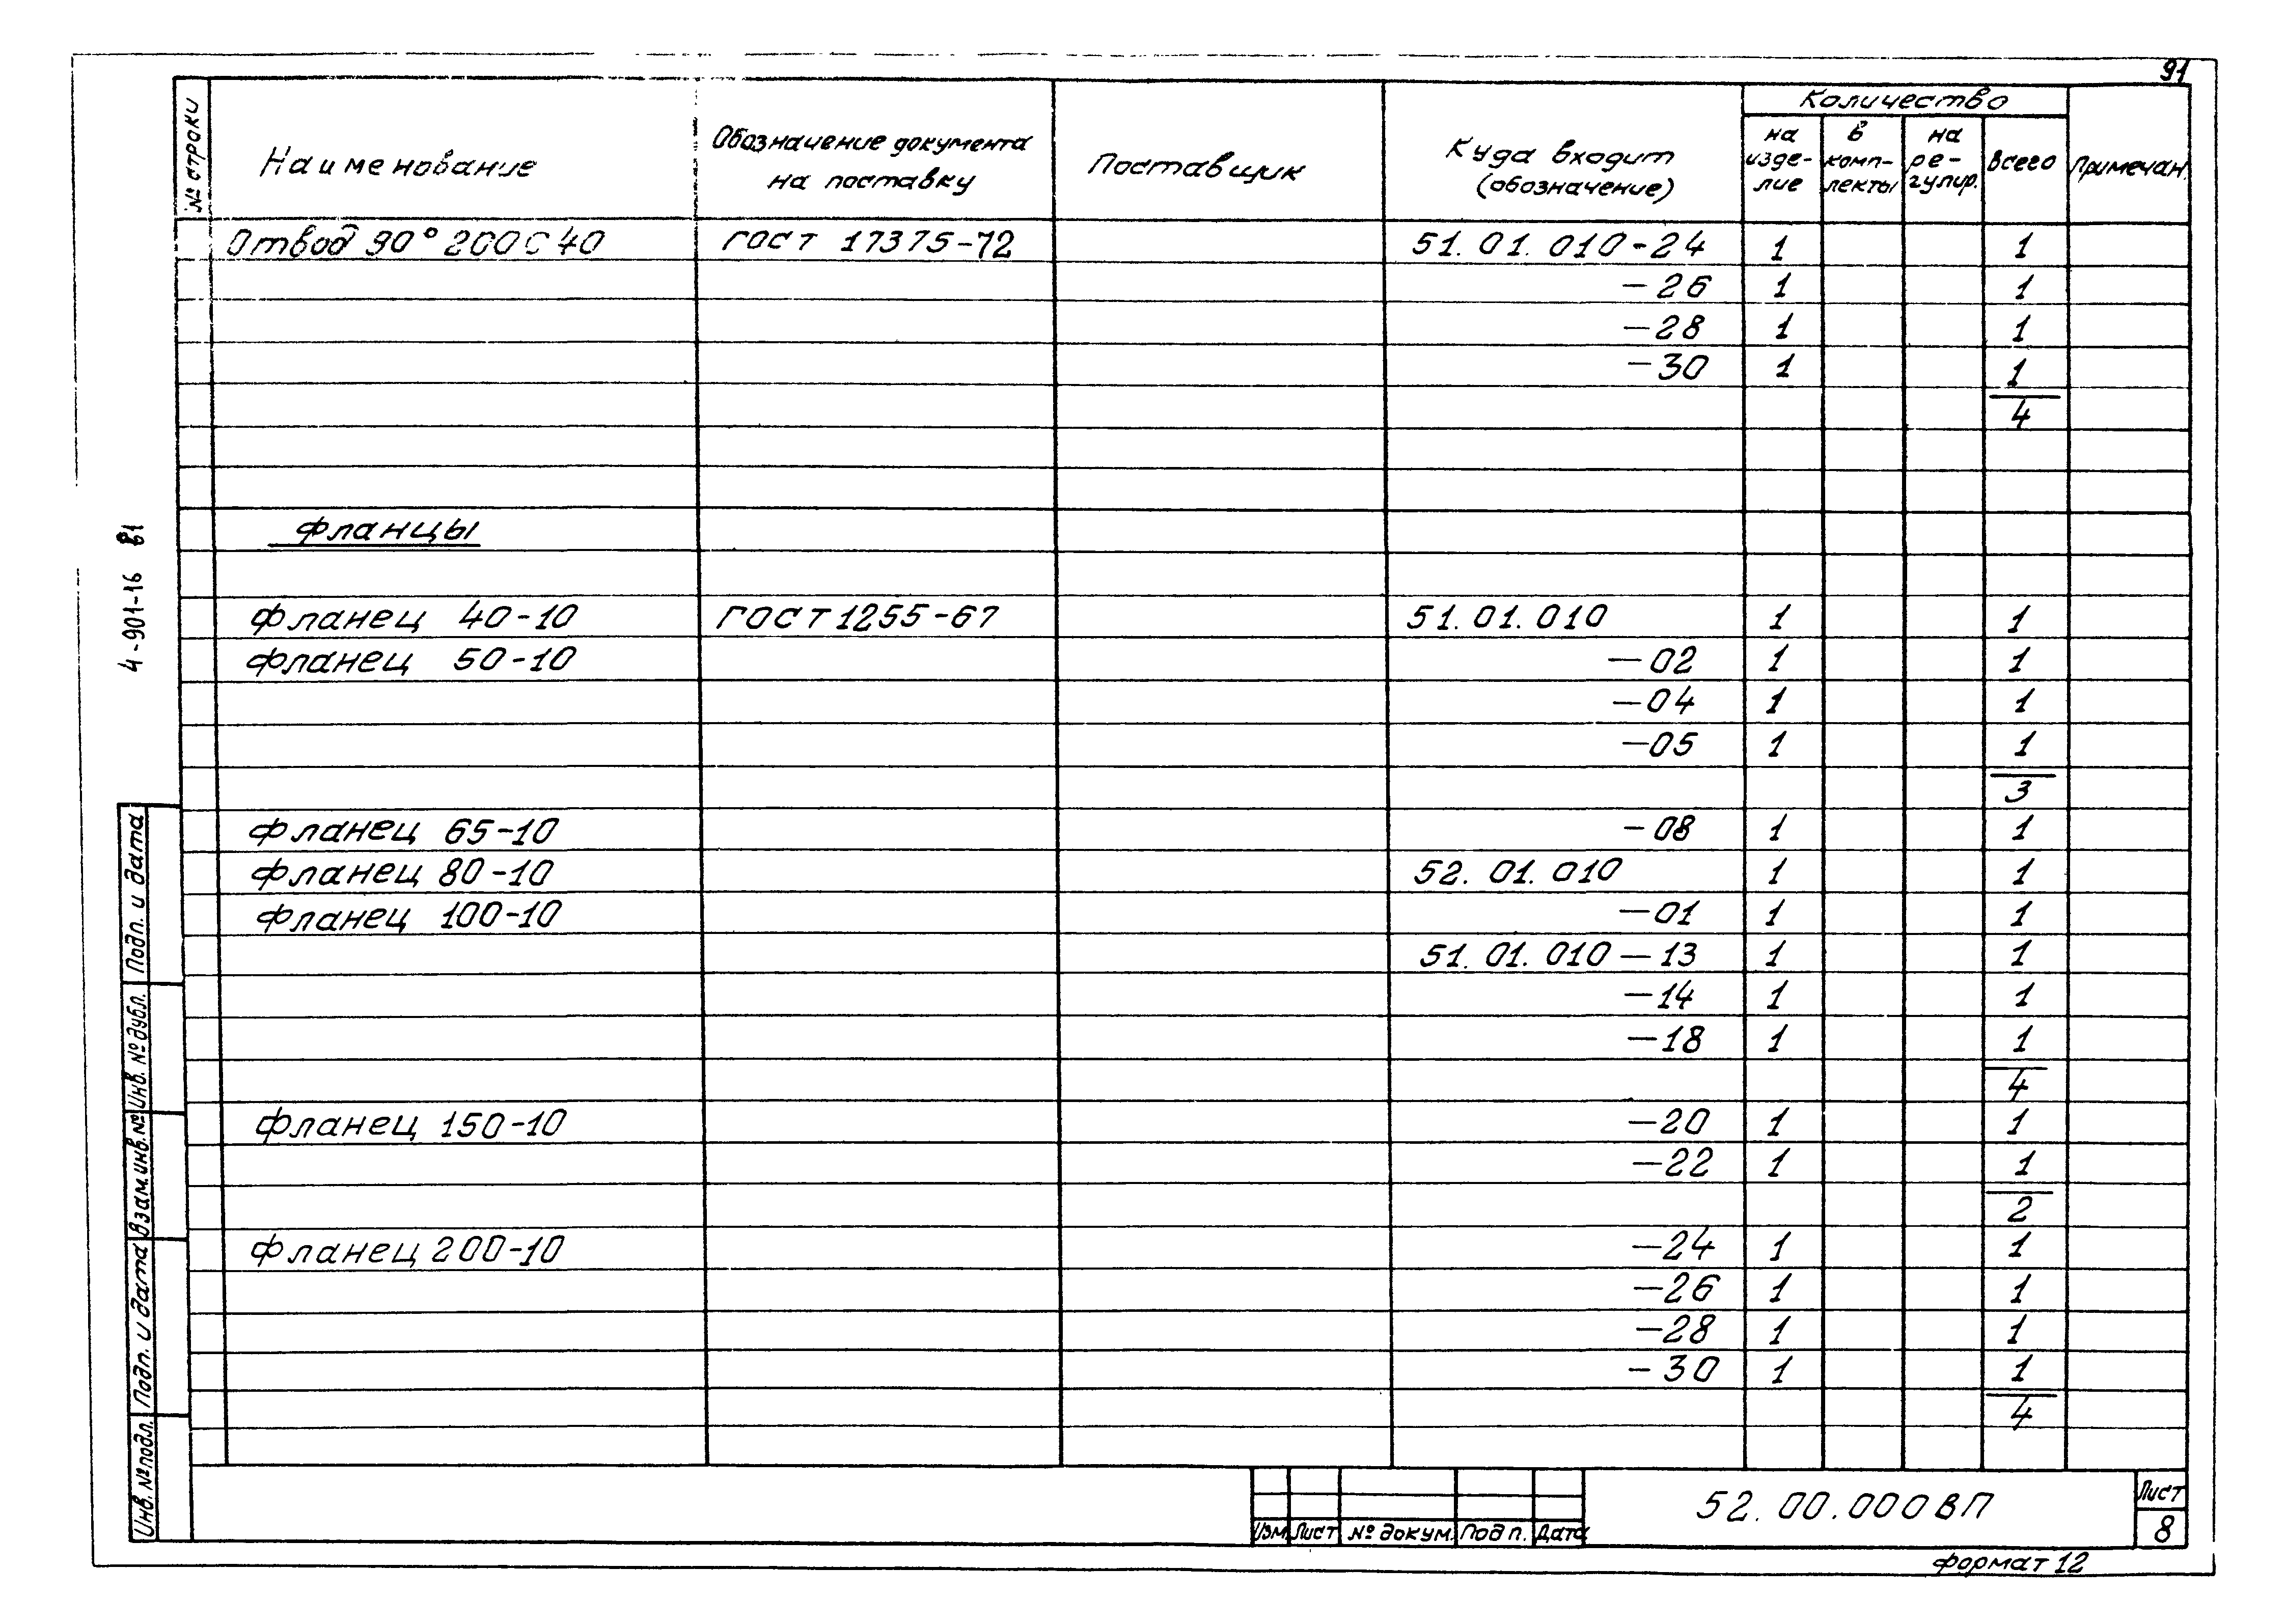 91
№ строки
Наименование
Обозначение документа
на поставку
Поставщик
Куда входит
(обозначение)
Количество
на
изде-
лие
в
комп-
лекты
на
ре-
гулир.
Всего
Примечан.
Отвод 90° 200С40 ГОСТ 17375-72 51.01.010-24 1 1
-26 1 1
-28 1 1
-30 1 1
4
Фланцы
Фланец 40-10 ГОСТ 1255-67 51.01.010 1 1
Фланец 50-10 -02 1 1
-04 1 1
-05 1 1
3
Фланец 65-10 -08 1 1
Фланец 80-10 52.01.010 1 1
Фланец 100-10 -01 1 1
51.01.010-13 1 1
-14 1 1
-18 1 1
4
Фланец 150-10 -20 1 1
-22 1 1
2
Фланец 200-10 -24 1 1
-26 1 1
-28 1 1
-30 1 1
4
4-901-16 В1
Подп. и дата
Инв. № дубл.
Взам. инв. №
Подп. и дата
Инв. № подл.
Изм Лист № докум. Подп. Дата
52.00.000ВП
Лист
8
Формат 12